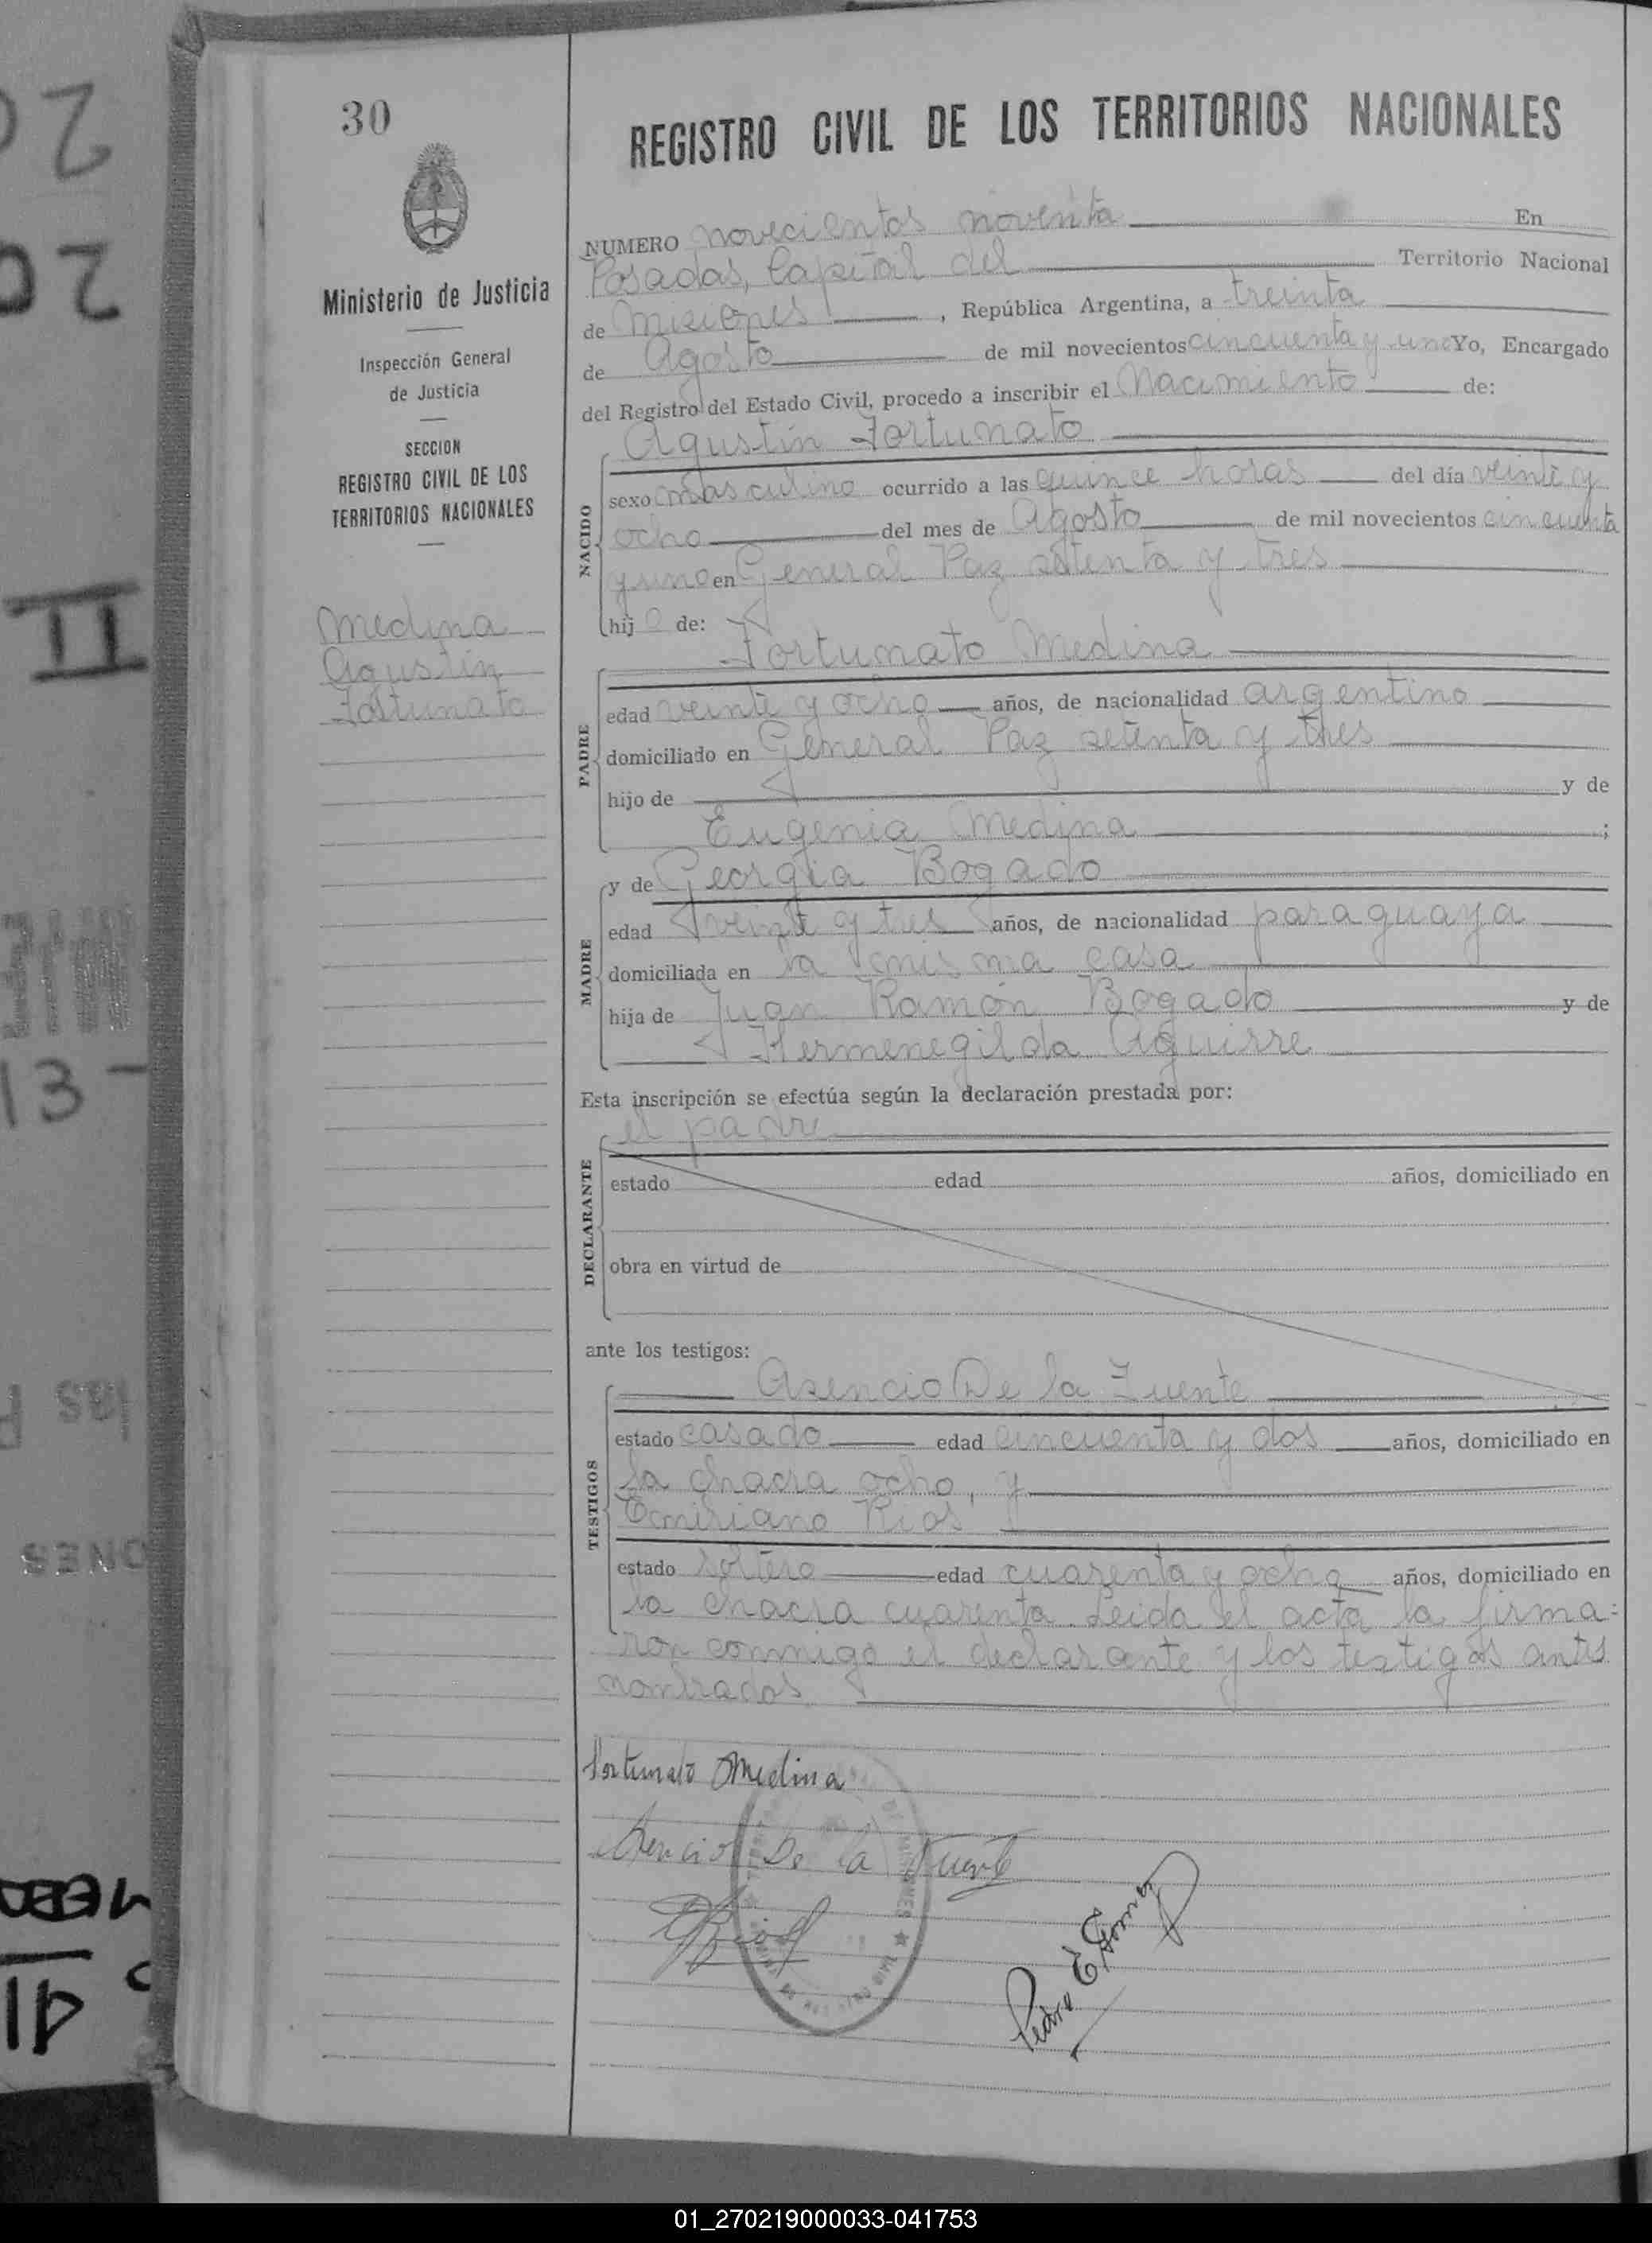 30
REGISTRO CIVIL DE LOS TERRITORIOS NACIONALES
Ministerio de Justicia
Inspección General
de Justicia
SECCION
REGISTRO CIVIL DE LOS
TERRITORIOS NACIONALES
Medina
Agustín
Fortunato
NUMERO novecientos noventa En
Posadas, Capital del Territorio Nacional
de Misiones, República Argentina, a treinta
de Agosto de mil novecientos cincuenta y uno Yo, Encargado
del Registro del Estado Civil, procedo a inscribir el Nacimiento de:
Agustín Fortunato
NACIDO
sexo masculino ocurrido a las quince horas del día veinte y
ocho del mes de Agosto de mil novecientos cincuenta
y uno en General Paz setenta y tres
hijo de:
Fortunato Medina
PADRE
edad veinte y ocho años, de nacionalidad argentino
domiciliado en General Paz setenta y tres
hijo de y de
Eugenia Medina ;
y de Georgia Bogado
MADRE
edad veinte y tres años, de nacionalidad paraguaya
domiciliada en la misma casa
hija de Juan Ramón Bogado y de
Hermenegilda Aguirre
Esta inscripción se efectúa según la declaración prestada por:
el padre
DECLARANTE
estado edad años, domiciliado en
obra en virtud de
ante los testigos:
Asencio De la Fuente
TESTIGOS
estado casado edad cincuenta y dos años, domiciliado en
la chacra ocho, y
Emiriano Rios
estado soltero edad cuarenta y ocho años, domiciliado en
la chacra cuarenta. Leida el acta la firma=
ron conmigo el declarante y los testigos antes
nombrados
Fortunato Medina
Asencio De la Fuente
ERios
Pedro E Gomez
01_270219000033-041753